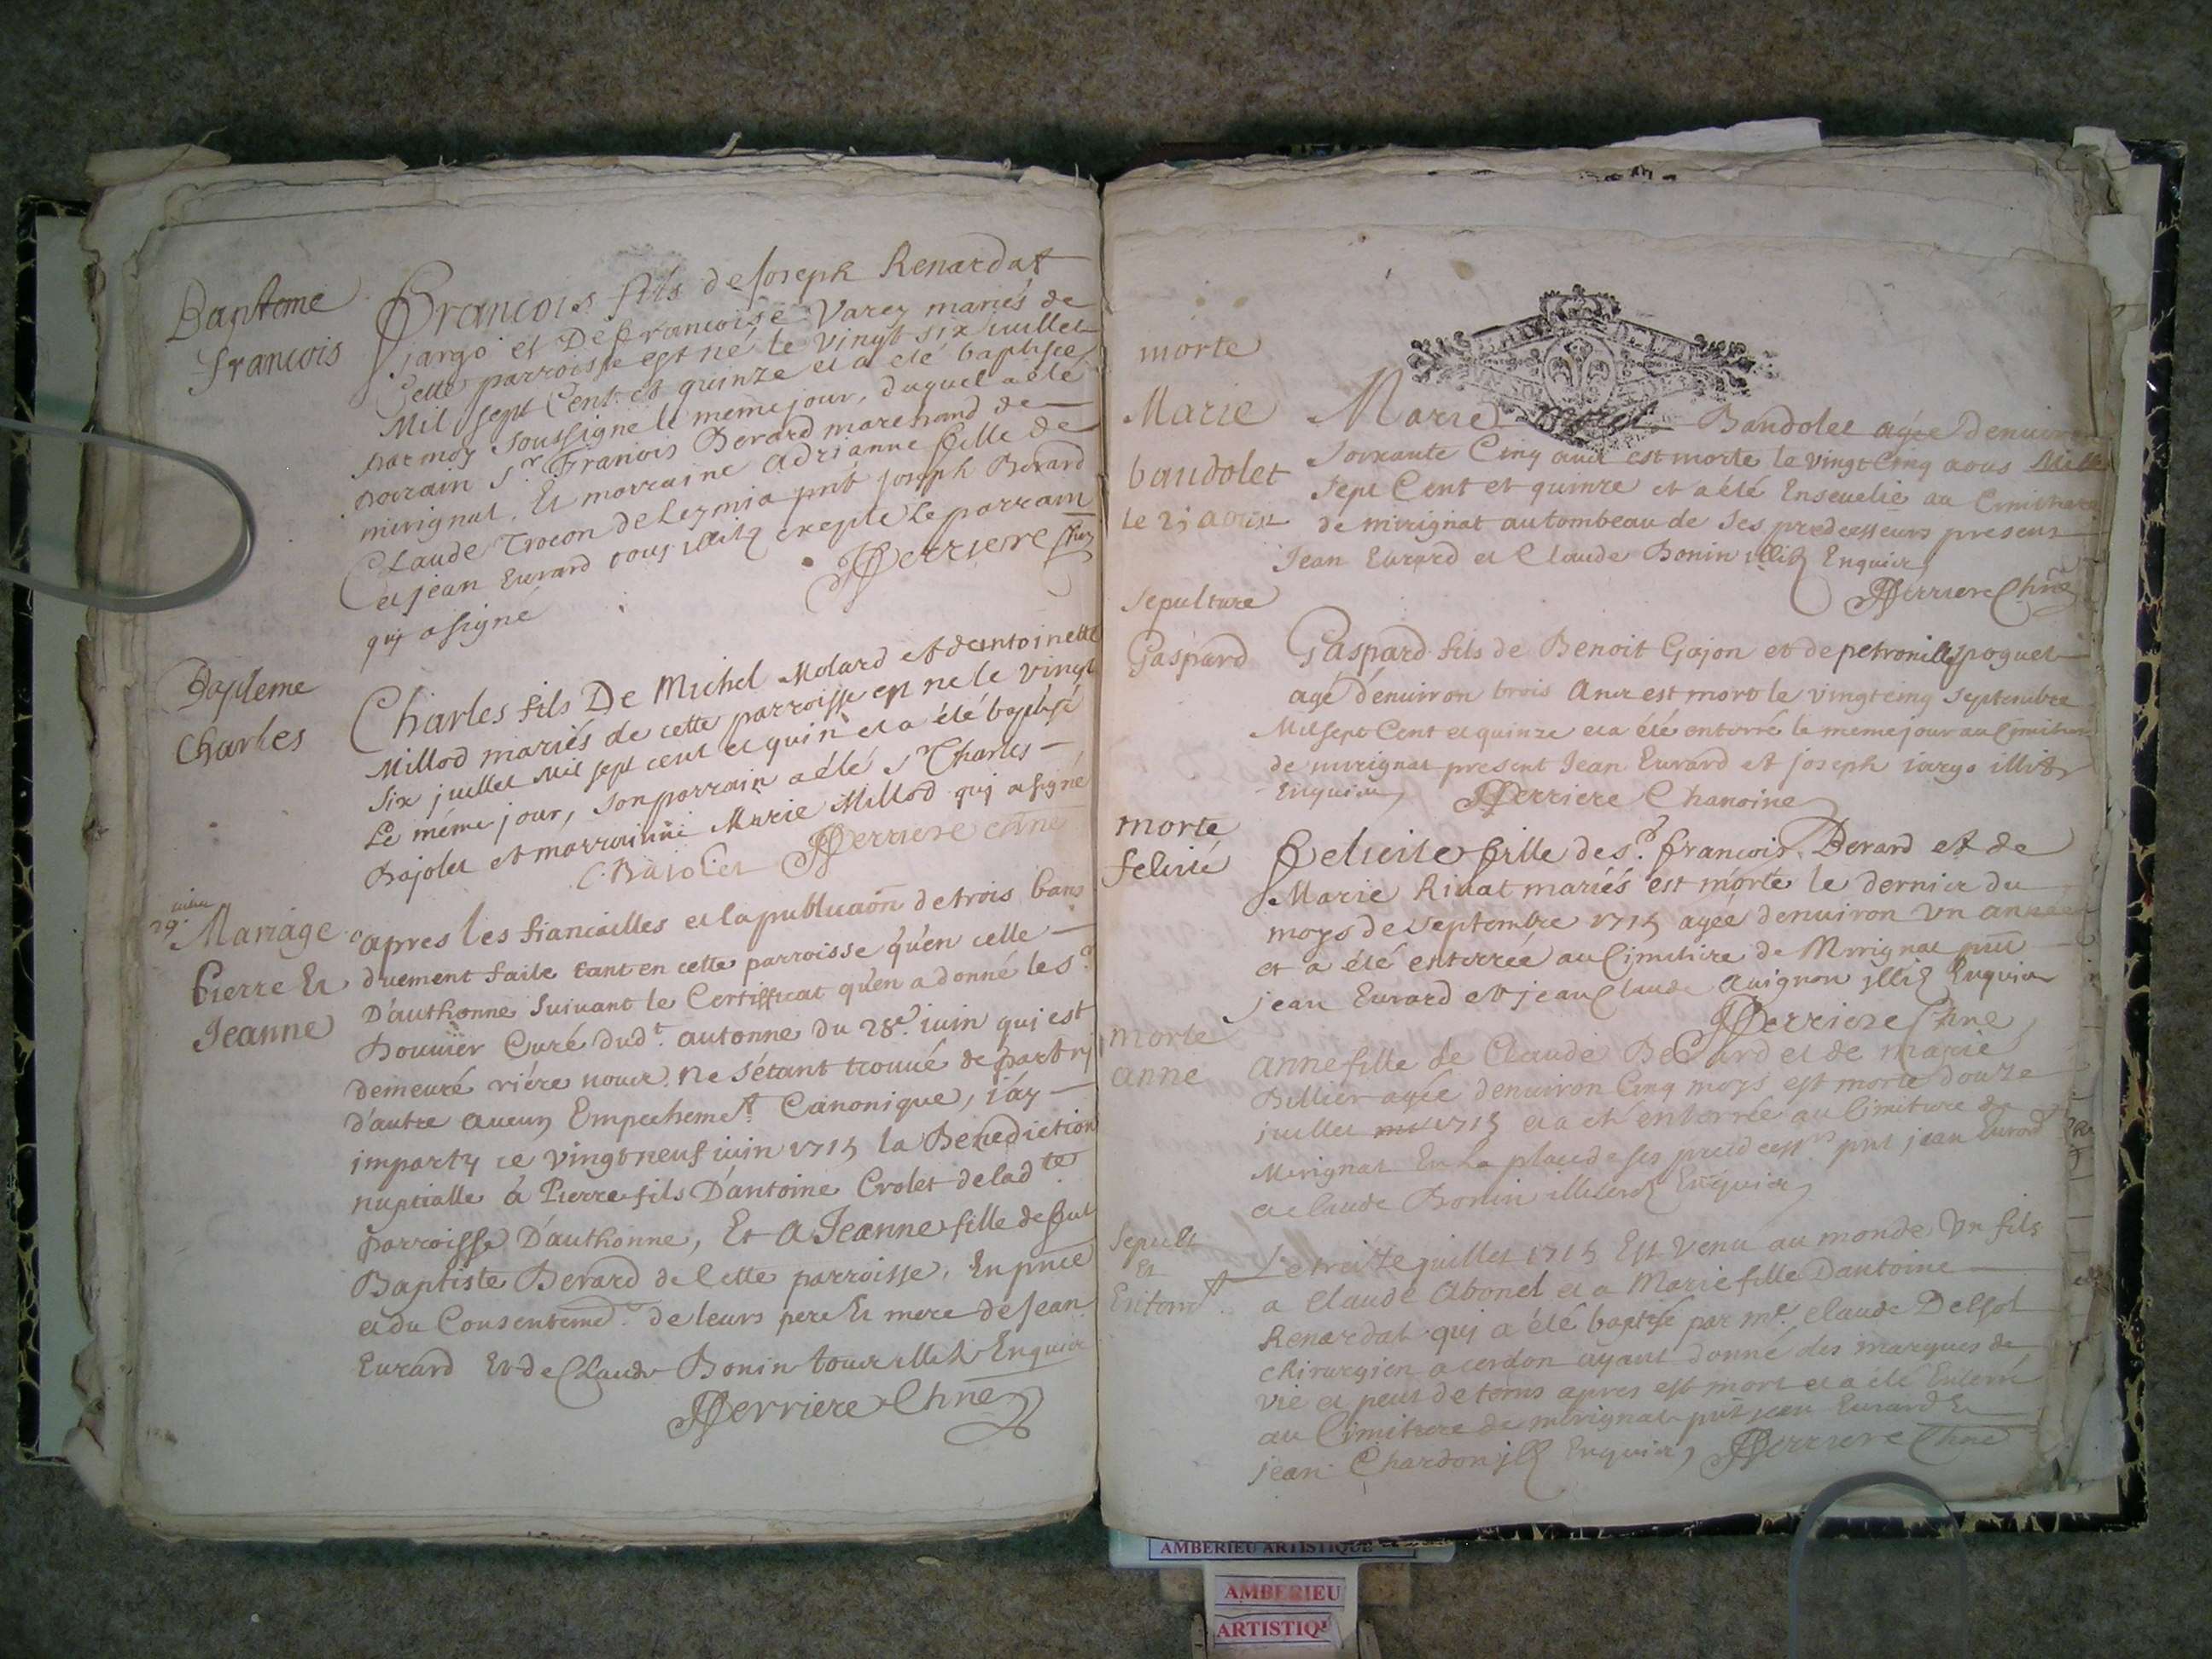 Bapteme
francois
Francois fils de Joseph Renardat
jargo et De francoise Varey mariés de
Cette parroisse est né le vingt six juillet
Mil sept Cent et quinze et a été baptisée
par moy soussigné le meme jour, duquel a été
parrain Sr. Francois Berard marchand de
mirignat, Et marraine adrianne fille de
Claude Trocon de Leymia pnt joseph Berard
et jean Evrard tous excepte le parrain
qui a signé
JPerriere Chne
Bapteme
Charles
Charles fils De Michel Molard et d'antoinette
Millod mariés de cette parroisse est né le vingt
six juillet Mil sept cent et quin et a été baptisé
Le méme jour, son parrain a été Sr Charles
Bajolet et marrainne Marie Millod qui a signé
C. Bajolet JPerriere Chne
29e juin
Mariage
Pierre Et
Jeanne
apres les fiancailles et la publicaõn de trois bans
duement faite tant en cette parroisse qu'en celle
D'authonne suivant le Certifficat qu'en a donné le Sr
Bouvier Curé dudt. autonne du 28e. juin qui est
demeuré riére nous, ne s'étant trouué de part ny
d'autre aucun Empechemt Canonique, j'ay
imparty ce vingt neuf juin 1715 la Benediction
nuptialle à Pierre fils D'antoine Crolet de ladte
parroisse D'authonne, Et a Jeanne fille de feut
Baptiste Berard de Cette parroisse, En pnce
et du Consentemt. de leurs pere Et mere de Jean
Evrard Et de Claude Bonin tous illit. Enquis
JPerriere Chne
morte
Marie
baudolet
le 25 aoust
Marie Baudolet agée denuiron
soixante Cinq ans est morte le vingt Cinq aous Mille
sept Cent et quinze et a été Enseuelie au Cimitiere
de mirignat au tombeau de ses predecesseurs presens
Jean Evrard et Claude Bonin illit Enquis
JPerriere Chne
sepulture
Gaspard
Gaspard fils de Benoit Gojon et de petronille poguet
agé d'enuiron trois Ans est mort le vingt cinq septembre
Mil sept Cent et quinze et a été enterré le meme jour au Cimitiere
de mirignat present Jean Evrard et joseph jargo illit
Enquis JPerriere Chanoine
morte
felicité
felicité fille de Sr. francois Berard et de
Marie Rivat mariés est morte le dernier du
moys de septembre 1715 agée denuiron Vn
et a été enterrée au Cimitiere de Mirignat pnt
jean Evrard et jean Claude Avignon illit Enquis
JPerriere Chne
morte
anne
anne fille de Claude Berard et de marie
Billier agée denuiron Cinq moys est morte douze
juillet 1715 et a eté enterrée au Cimitiere de
Mirignat En La place de ses predcessrs pnt jean Evrard
et claude Bonin Enquis
sepult
Et
Enterrt
Le treize juillet 1715 Est venu au monde Vn fils
a Claude Abonel et a Marie fille D'antoine
Renardat qui a été baptisé par me. Claude Delsol
chirurgien a cerdon ayant donné des marques de
vie et peut de tems apres est mort et a été Enterré
au Cimitiere de mirignat pnt jean Evrard Et
jean Chardon Enquis JPerriere Chne
AMBERIEU ARTISTIQUE
AMBERIEU
ARTISTIQU